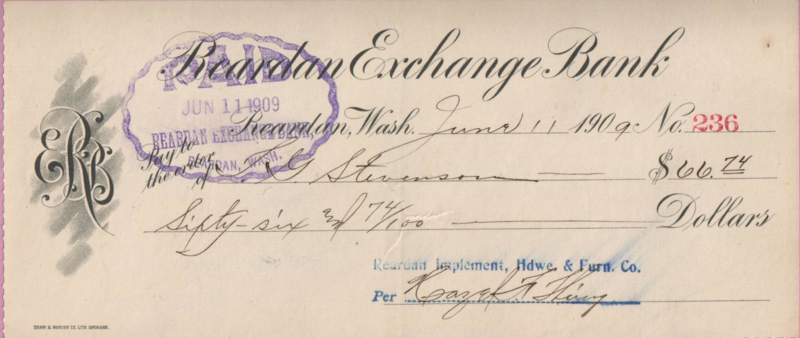 Reardan Exchange Bank
PAID
JUN 11 1909
REARDAN EXCHANGE BANK,
REARDAN, WASH.
Reardan, Wash. June 11 1909 No. 236
ERB
Pay to the order of G. Stevenson $66.74
Sifty-six and 74/100 Dollars
Reardan Implement, Hdwe. & Furn. Co.
Per
SHAW & BORDEN CO. LTD. SPOKANE.